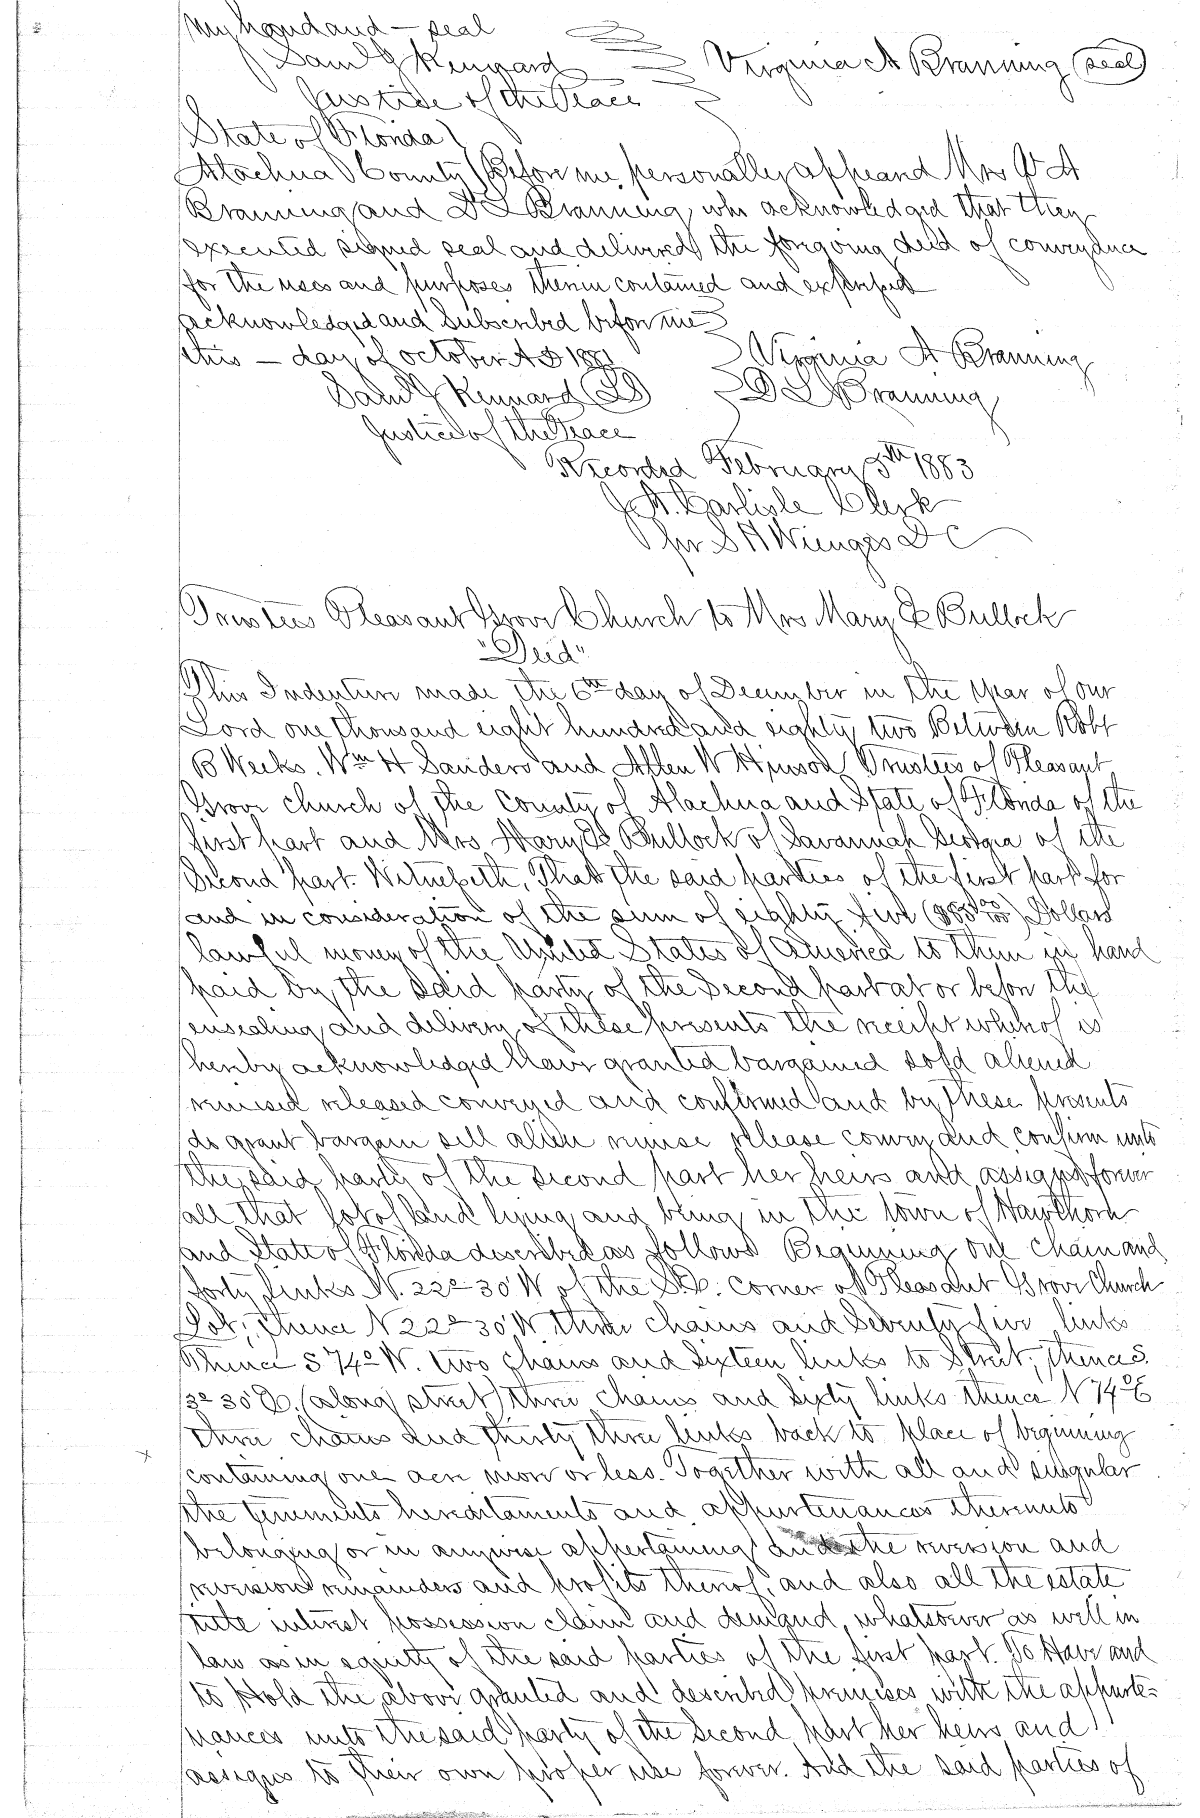 my hand and — seal
Saml J Kennard
Virginia A Branning (seal)
Justice of the Peace
State of Florida
Alachua County Before me personally appeard Mrs V A
Branning and D L Branning who acknowledged that they
executed signed seal and delivered the foregoing deed of conveyance
for the uses and purposes therein contained and expressed
acknowledged and subscribed before me
this — day of October A D 1881
Virginia A Branning
Saml J Kennard (LS)
D L Branning
Justice of the Peace
Recorded February 5th 1883
J. A. Carlisle Clerk
per S H Wienges D C
Trustees Pleasant Grove Church to Mrs Mary E Bullock
"Deed"
This Indenture made the 6th day of December in the year of our
Lord one thousand eight hundred and eighty two Between Robt
B Weeks. Wm H Sanders and Allen W Hinson Trustees of Pleasant
Grove church of the County of Alachua and State of Florida of the
first part and Mrs Mary E Bullock of Savannah Georgia of the
Second part. Witnesseth, That the said parties of the first part for
and in consideration of the sum of eighty five ($85 00/100) Dollars
lawful money of the United States of America to them in hand
paid by the said party of the Second part at or before the
ensealing and delivery of these presents the receipt whereof is
hereby acknowledged have granted bargained sold aliened
remised released conveyed and confirmed and by these presents
do grant bargain sell alien remise release convey and confirm unto
the said party of the second part her heirs and assigns forever
all that lot of land lying and being in the town of Hawthorn
and State of Florida described as follows Beginning one chain and
forty links N. 22° 30' W of the S.E. corner of Pleasant Grove Church
Lot; thence N 22° 30' W. three chains and Seventy five links
Thence S 74° W. two chains and Sixteen links to Street; thence S.
3° 30' E. (along street) three chains and sixty links thence N 74° E
three chains and thirty three links back to place of beginning
containing one acre more or less. Together with all and singular
the tenements hereditaments and appurtenances thereunto
belonging or in anywise appertaining and the reversion and
reversions remainders and profits thereof, and also all the estate
title interest possession claim and demand whatsoever as well in
law as in equity of the said parties of the first part. To Have and
to Hold the above granted and described premises with the appurte-
nances unto the said party of the Second part her heirs and
assigns to their own proper use forever. And the said parties of